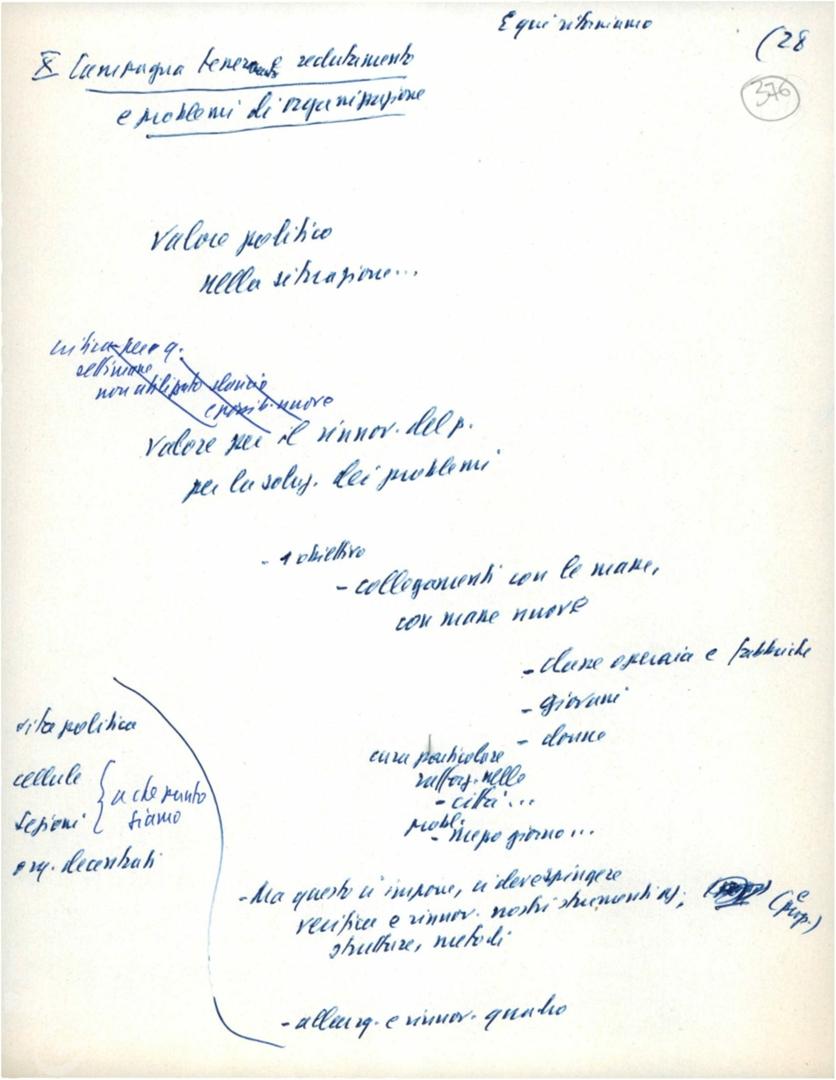 E qui ritorniamo
(28
376
X Campagna tesseram. e reclutamento
e problemi di organizzazione
Valore politico
nella situazione...
critica per q.
settimane
non utilizzato slancio
e possib. nuove
Valore per il rinnov. del p.
per la soluz. dei problemi
- 1 obiettivo
- collegamenti con le masse,
con masse nuove
- classe operaia e fabbriche
- giovani
- donne
cura particolare
rafforz. nelle
- città...
probl.
- mezzogiorno...
vita politica
cellule
sezioni
a che punto
siamo
org. decentrati
- Ma questo ci impone, ci deve spingere
verifica e rinnov. nostri strumenti
(e prop.)
strutture, metodi
- allarg. e rinnov. quadro